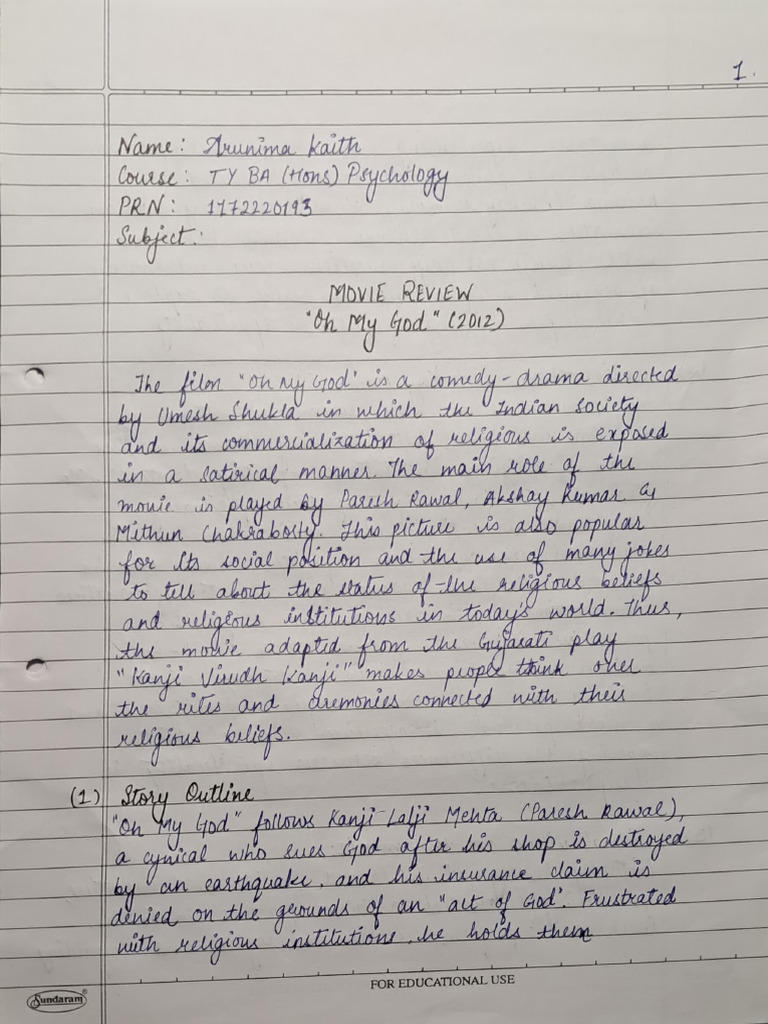 1.
Name: Arunima Kaith
Course: TY BA (Hons) Psychology
PRN: 1172220193
Subject:
MOVIE REVIEW
"Oh My God" (2012)
The film "Oh My God" is a comedy-drama directed
by Umesh Shukla in which the Indian society
and its commercialization of religious is exposed
in a satirical manner. The main role of the
movie is played by Paresh Rawal, Akshay Kumar &
Mithun Chakraborty. This picture is also popular
for its social position and the use of many jokes
to tell about the status of the religious beliefs
and religious institutions in today's world. Thus,
the movie adapted from the Gujarati play
"Kanji Virudh Kanji" makes people think over
the rites and ceremonies connected with their
religious beliefs.
(1) Story Outline
"Oh My God" follows Kanji Lalji Mehta (Paresh Rawal),
a cynical who sues God after his shop is destroyed
by an earthquake, and his insurance claim is
denied on the grounds of an "act of God". Frustrated
with religious institutions, he holds them
FOR EDUCATIONAL USE
Sundaram®